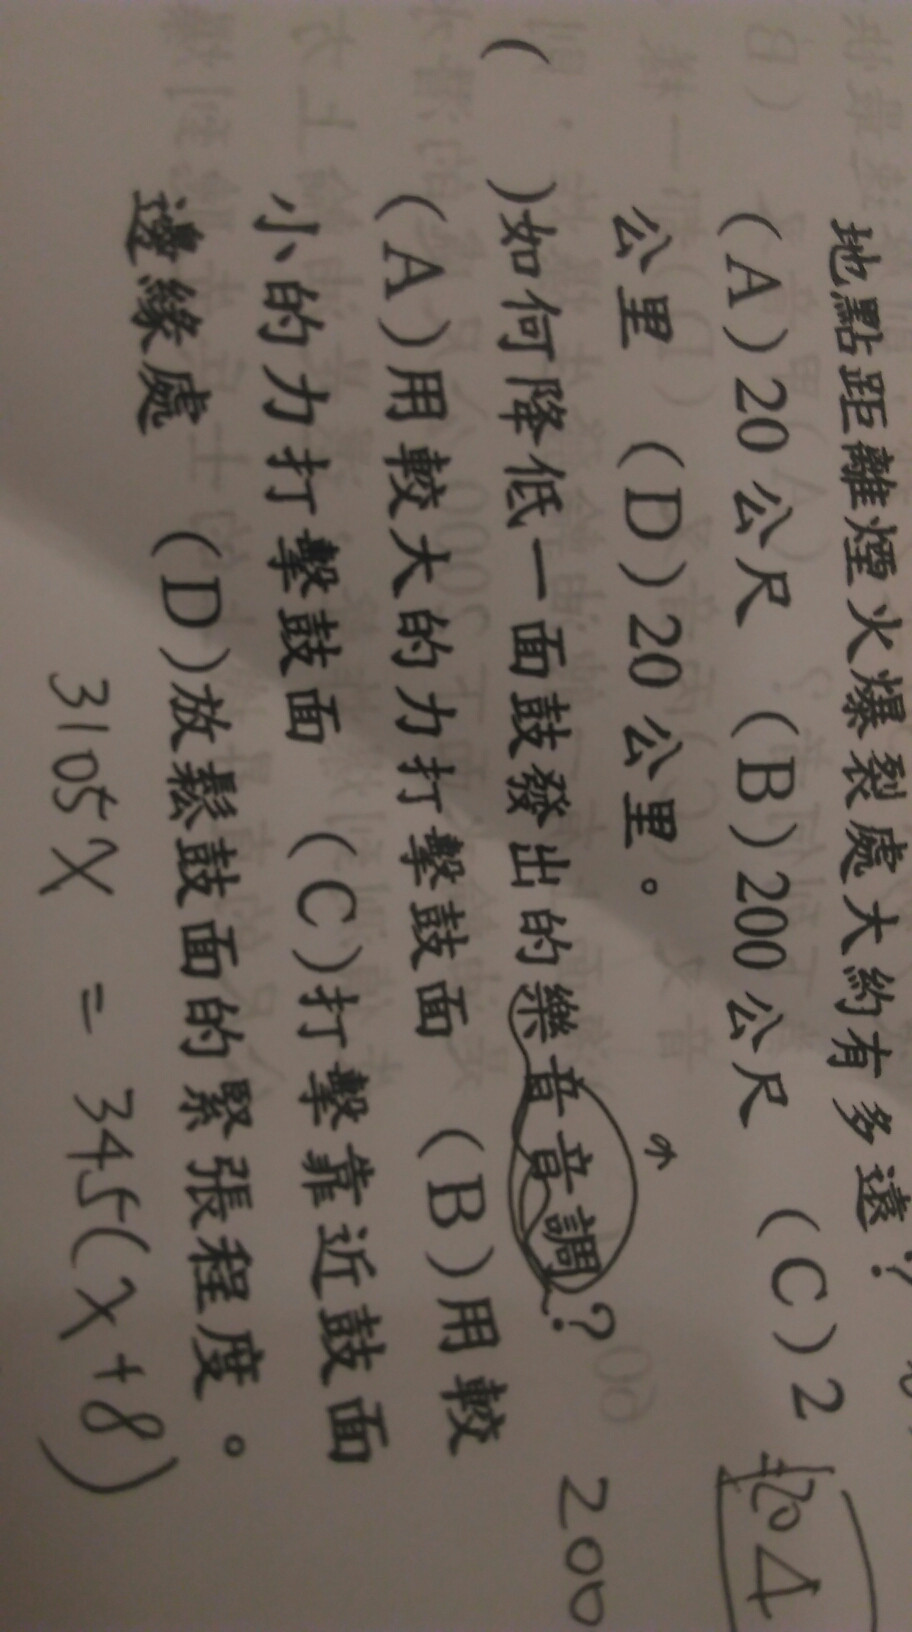 地點距離煙火爆裂處大約有多遠？
(A)20公尺 (B)200公尺 (C)2
公里 (D)20公里。
( )如何降低一面鼓發出的樂音音調？
(A)用較大的力打擊鼓面 (B)用較
小的力打擊鼓面 (C)打擊靠近鼓面
邊緣處 (D)放鬆鼓面的緊張程度。
200
3105X = 345(X+8)